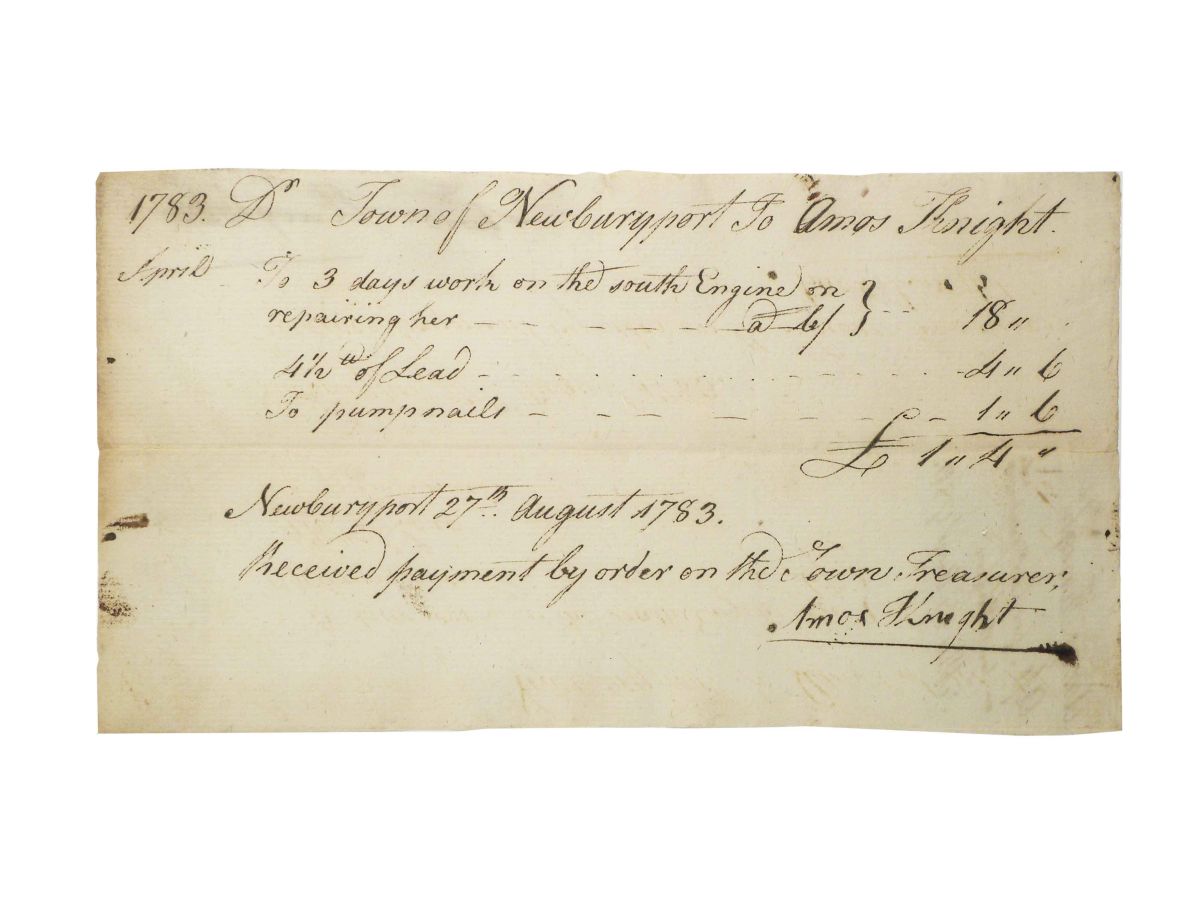 1783. Dr Town of Newburyport To Amos Knight.
April To 3 days work on the south Engine on
repairing her — — — — — — a 6/ } - - 18 "
4 1/2 lb of Lead - . . . . . . . . . . - 4 " 6
To pump nails — — — — — — — — 1 " 6
£ 1 " 4 "
Newburyport 27th August 1783.
Received payment by order on the Town Treasurer,
Amos Knight